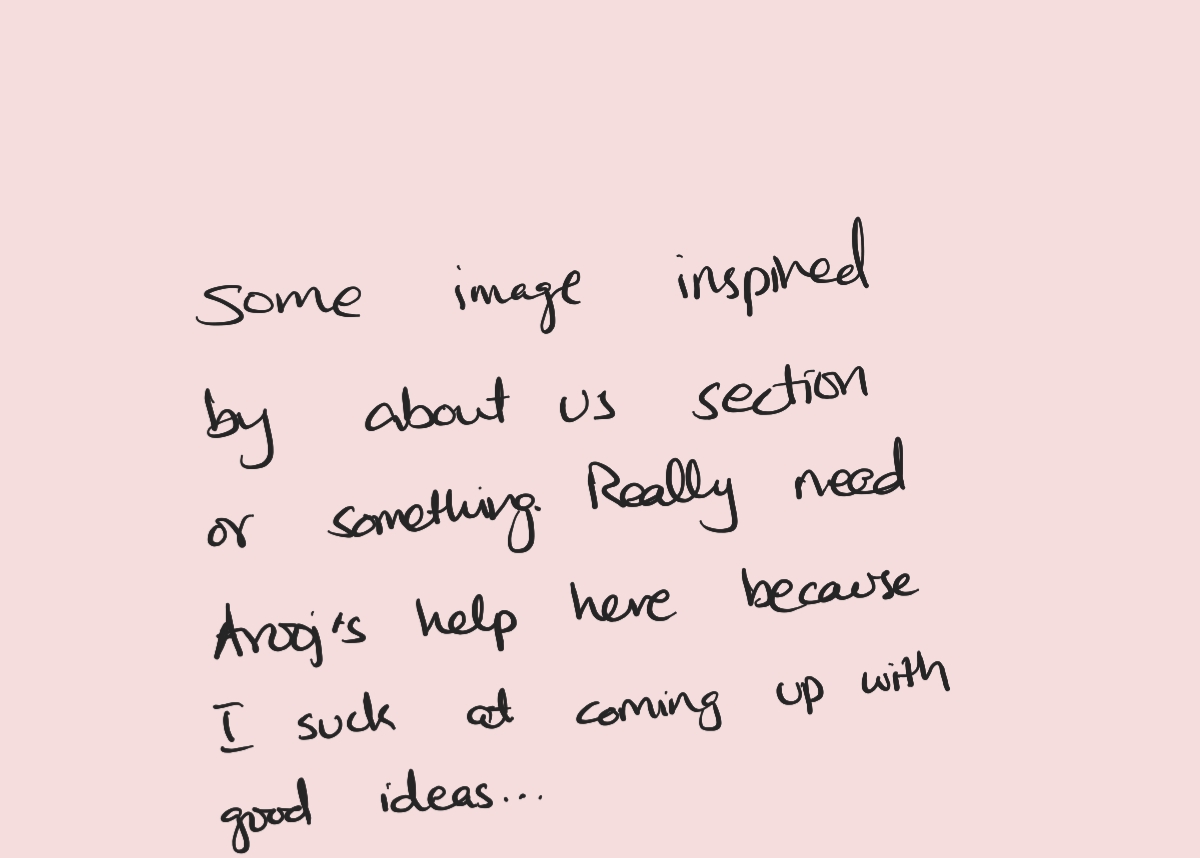 Some image inspired
by about us section
or something. Really need
Arooj's help here because
I suck at coming up with
good ideas...